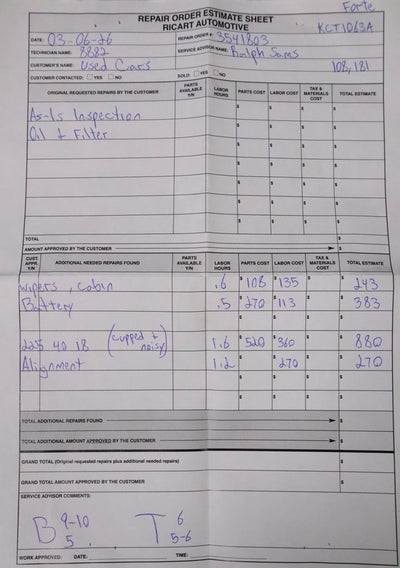 Forte
REPAIR ORDER ESTIMATE SHEET
RICART AUTOMOTIVE
KCT1063A
DATE: 03-06-26
REPAIR ORDER #: 3541803
TECHNICIAN NAME: 8882
SERVICE ADVISOR NAME: Ralph Sams
CUSTOMER'S NAME: Used Cars
108,181
CUSTOMER CONTACTED: YES NO
SOLD: YES NO
ORIGINAL REQUESTED REPAIRS BY THE CUSTOMER PARTS AVAILABLE Y/N LABOR HOURS PARTS COST LABOR COST TAX & MATERIALS COST TOTAL ESTIMATE
As-Is Inspection $ $ $ $
Oil & Filter $ $ $ $
$ $ $ $
$ $ $ $
$ $ $ $
$ $ $ $
$ $ $ $
TOTAL $
AMOUNT APPROVED BY THE CUSTOMER $
CUST. APPR. Y/N ADDITIONAL NEEDED REPAIRS FOUND PARTS AVAILABLE Y/N LABOR HOURS PARTS COST LABOR COST TAX & MATERIALS COST TOTAL ESTIMATE
wipers, cabin .6 $ 108 $ 135 $ $ 243
Battery .5 $ 270 $ 113 $ $ 383
225 40 18 (cupped & noisy) 1.6 $ 520 $ 360 $ $ 880
Alignment 1.2 $ $ 270 $ $ 270
$ $ $ $
TOTAL ADDITIONAL REPAIRS FOUND $
TOTAL ADDITIONAL AMOUNT APPROVED BY THE CUSTOMER $
GRAND TOTAL (Original requested repairs plus additional needed repairs) $
GRAND TOTAL AMOUNT APPROVED BY THE CUSTOMER $
SERVICE ADVISOR COMMENTS:
B 9-10 T 6
5 5-6
WORK APPROVED: DATE: TIME: